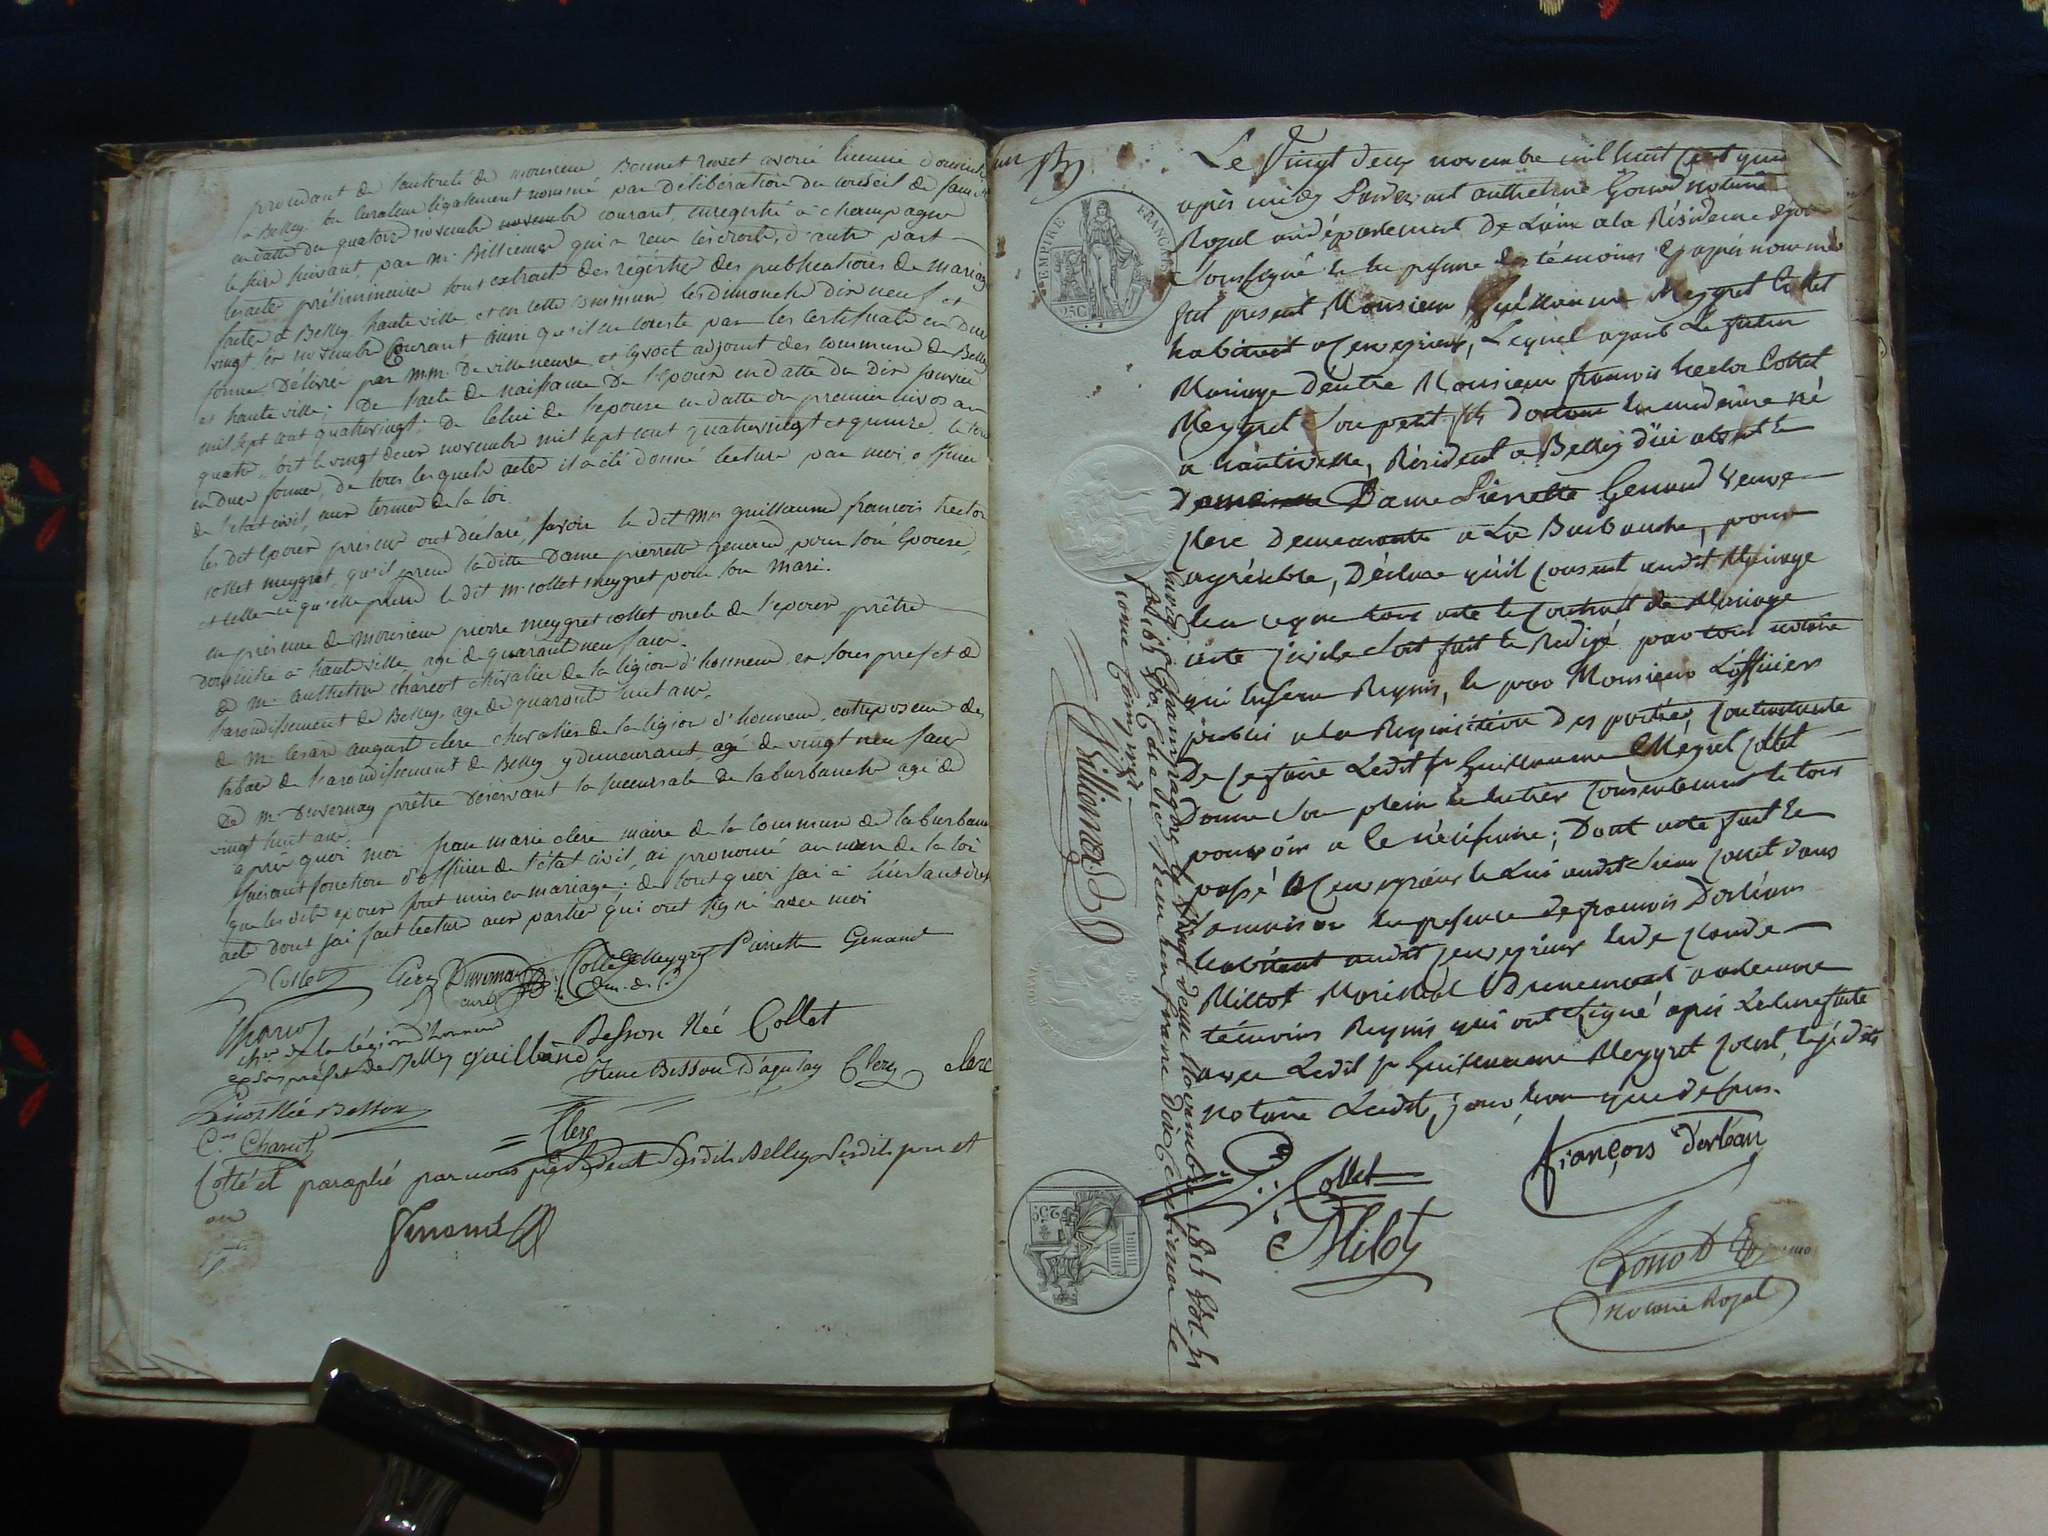 procedant de l'autorité de monsieur Bonnet
a Belley, son curateur légalement nommé par délibération du conseil de famille
en datte du quatorze novembre courant, enregistré à champagne
le seize suivant, par Mr. Billionnas qui a reçu les droits, d'autre part
les actes préliminaires sont extraits des régistres des publications de mariage
faites à Belley, hauteville, et en cette commune, les dimanches dix neuf et
vingt six novembre Courant ainsi qu'il en conste par les certificats en due
forme Délivrés par MM. De villeneuve et adjoint des communes de Belley
et hauteville; De l'acte de naissance De l'epoux en datte du dix janvier
mil sept cent quatrevingt; De celui de l'epouse en datte du premier nivos an
quatre, soit le vingt deux novembre mil sept cent quatrevingt et quinze. le tout
en due forme, de tous lesquels actes il a été donné lecture par moi, officier
de l'état civil, aux termes de la loi.
les dit Epoux présens ont déclaré, savoir le dit Mr guillaume francois hector
collet meygret, qu'il prend la ditte Dame pierrette genand pour son Epouse,
et celle ci qu'elle prend le dit mr collet meygret pour son mari.
en présence de monsieur pierre meygret collet oncle de l'epoux, prêtre
domicilié à hauteville, agé de quarante neuf ans.
de Mr. Anthelme charcot chevalier de la légion d'honneur, ex sous prefet de
l'arondissement de Belley, agé de quarante huit ans.
de Mr. Cesare august clerc chevalier de la légion d'honneur, entreposeur des
tabacs de l'arondissement de Belley y demeurant, agé de vingt neuf ans
De Mr. Duvernay prêtre Désservant la succursale de laburbanche agé de
vingt huit ans
après quoi moi jean marie clerc maire de la commune de la burbanche
faisant fonction d'officier de l'état civil, ai prononcé au nom de la loi
que les dits epoux sont unis en mariage; de tout quoi j'ai à l'instant
acte dont j'ai fait lecture aux parties qui ont signé avec moi
P Collet Clerc Duvernay curé Collet Meygret Pierrette Genand
Dm.
Charcot
cher de la légion d'honneur
ex Sous préfet de Belley Guilland Besson Née Collet
Besson D'aguday Clerc clerc
née Besson
C. Charcot Clerc
Cotté et paraphé par nous président Belley
Ferrand
Le Vingt deux novembre mil huit cent quinze
après midy Pardevant anthelme Gonod notaire
Royal au département De L'ain a la Résidence
Soussigné en présence des témoins cy après nommés
fut présent Monsieur Guillaume Meygret Collet
habitant a Cenveyriat, Lequel ayant Le futur
Mariage d'entre Monsieur françois hector Collet
Meygret Son petit fils docteur en médecine né
a hauteville, Résident a Belley d'ici absent et
Dame Pierrette Genand Veuve
clerc demeurante a La Burbanche, pour
agréable, Déclare qu'il consent audit Mariage
en ce que tous acte le contract de Mariage
acte civile soit fait et Redigé par tous notaire
qui en sera Requis, et par Monsieur L'officier
public a la Requisition des parties, contractante
De ce faire Ledit sr Guillaume Meygret collet
Donne Son plein et entier Consentement et tout
pouvoir a ce nécessaire; Dont acte fait et
passé a Cenveyriat et Lui audit Sieur collet dans
Sa maison en présence de françois Dorléans
habitant audit et de claude
Millot Maréchal Demeurant
témoins Requis qui ont Signé après Lecture faite
avec Ledit sr Guillaume Meygret Collet, et Led.
notaire Ledit jour et an que dessus.
G: Collet françois dorléan
C Milot
Gonod
notaire Royal
Enreg. à Champagne le Vingt deux Novembre 1815 Vol. 31
fol. 161 Vo. C. 6 reçu un franc dix centimes le
xeme Compris
Billionnas
EMPIRE FRANÇAIS
25 C
25 C